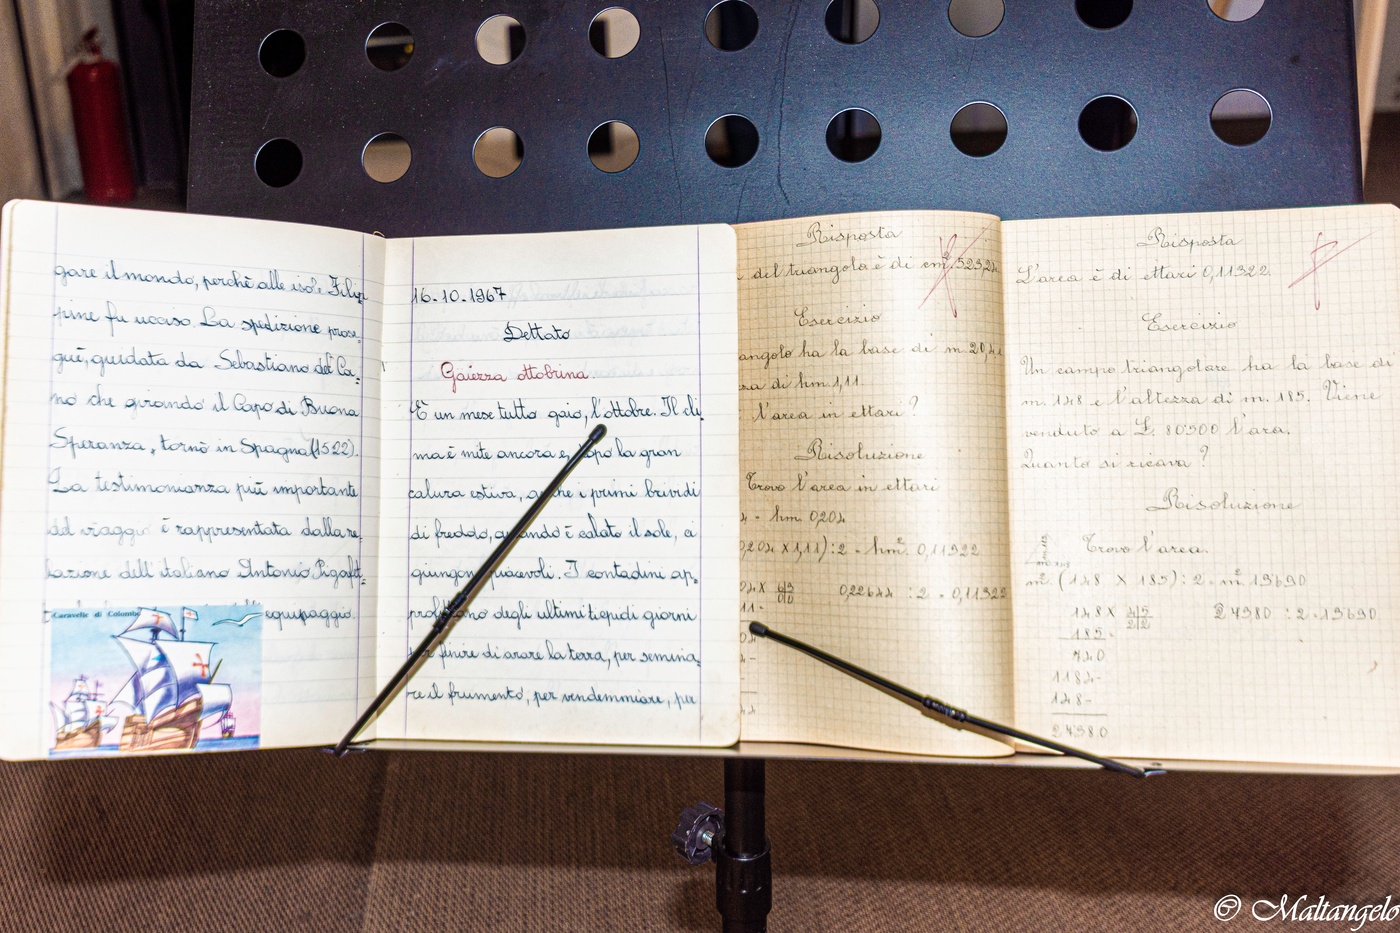 gare il mondo, perchè alle isole Filip
pine fu ucciso. La spedizione prose=
guì, guidata da Sebastiano del Ca=
no che girando il Capo di Buona
Speranza, tornò in Spagna (1522).
La testimonianza più importante
del viaggio è rappresentata dalla re=
lazione dell'italiano Antonio Pigafet=
equipaggio.
Caravelle di Colombo
16-10-1967
Dettato
Gaiezza ottobrina
È un mese tutto gaio, l'ottobre. Il cli=
ma è mite ancora e, dopo la gran
calura estiva, anche i primi brividi
di freddo, quando è calato il sole, ci
giungon piacevoli. I contadini ap=
profittano degli ultimi tiepidi giorni
per finire di arare la terra, per semina=
re il frumento, per vendemmiare, per
Risposta
del triangolo è di cm² 523,26.
Esercizio
angolo ha la base di m. 20,4 e
za di hm. 1,11.
l'area in ettari?
Risoluzione
Trovo l'area in ettari
= hm. 0,204
0,204 x 1,11) : 2 = hm². 0,11322
0,22644 : 2 = 0,11322
Risposta
L'area è di ettari 0,11322.
Esercizio
Un campo triangolare ha la base di
m. 148 e l'altezza di m. 185. Viene
venduto a £. 80500 l'ara.
Quanto si ricava?
Risoluzione
Trovo l'area.
m² (148 X 185) : 2 = m² 13690
148 x
185 =
27380 : 2 = 13690
740
1184-
148-
27380
© Maltangelo